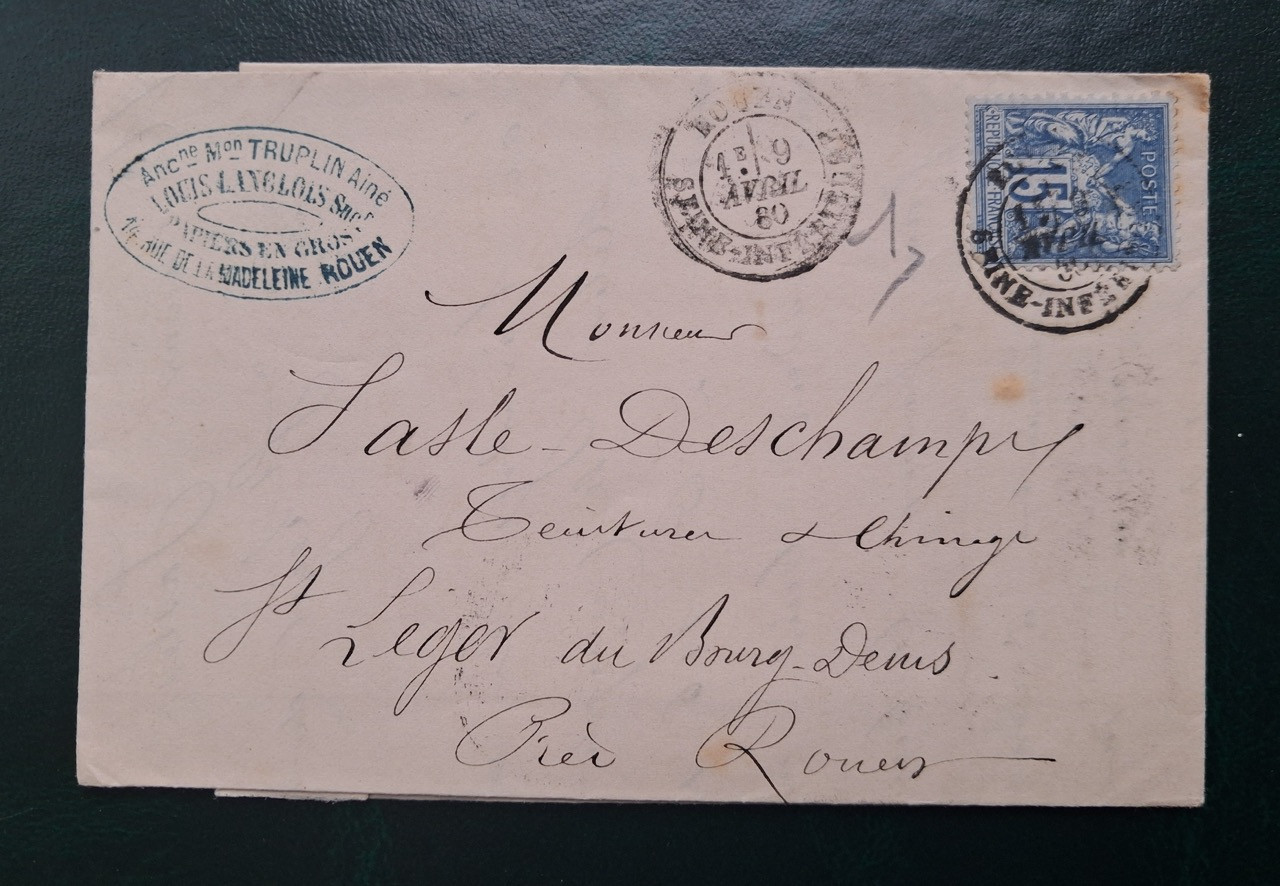 Ancne Mon TRUPLIN Ainé
LOUIS LANGLOIS Sucr
PAPIERS EN GROS
RUE DE LA MADELEINE ROUEN
ROUEN
1E 9
AVRIL
80
SEINE-INFÉRIEURE
REPUB FRANC
15
POSTE
9
AVRIL
80
SEINE-INFÉR
Monsieur
Sasle-Deschamps
Teinturer & Chinage
St Léger du Bourg-Denis
Près Rouen